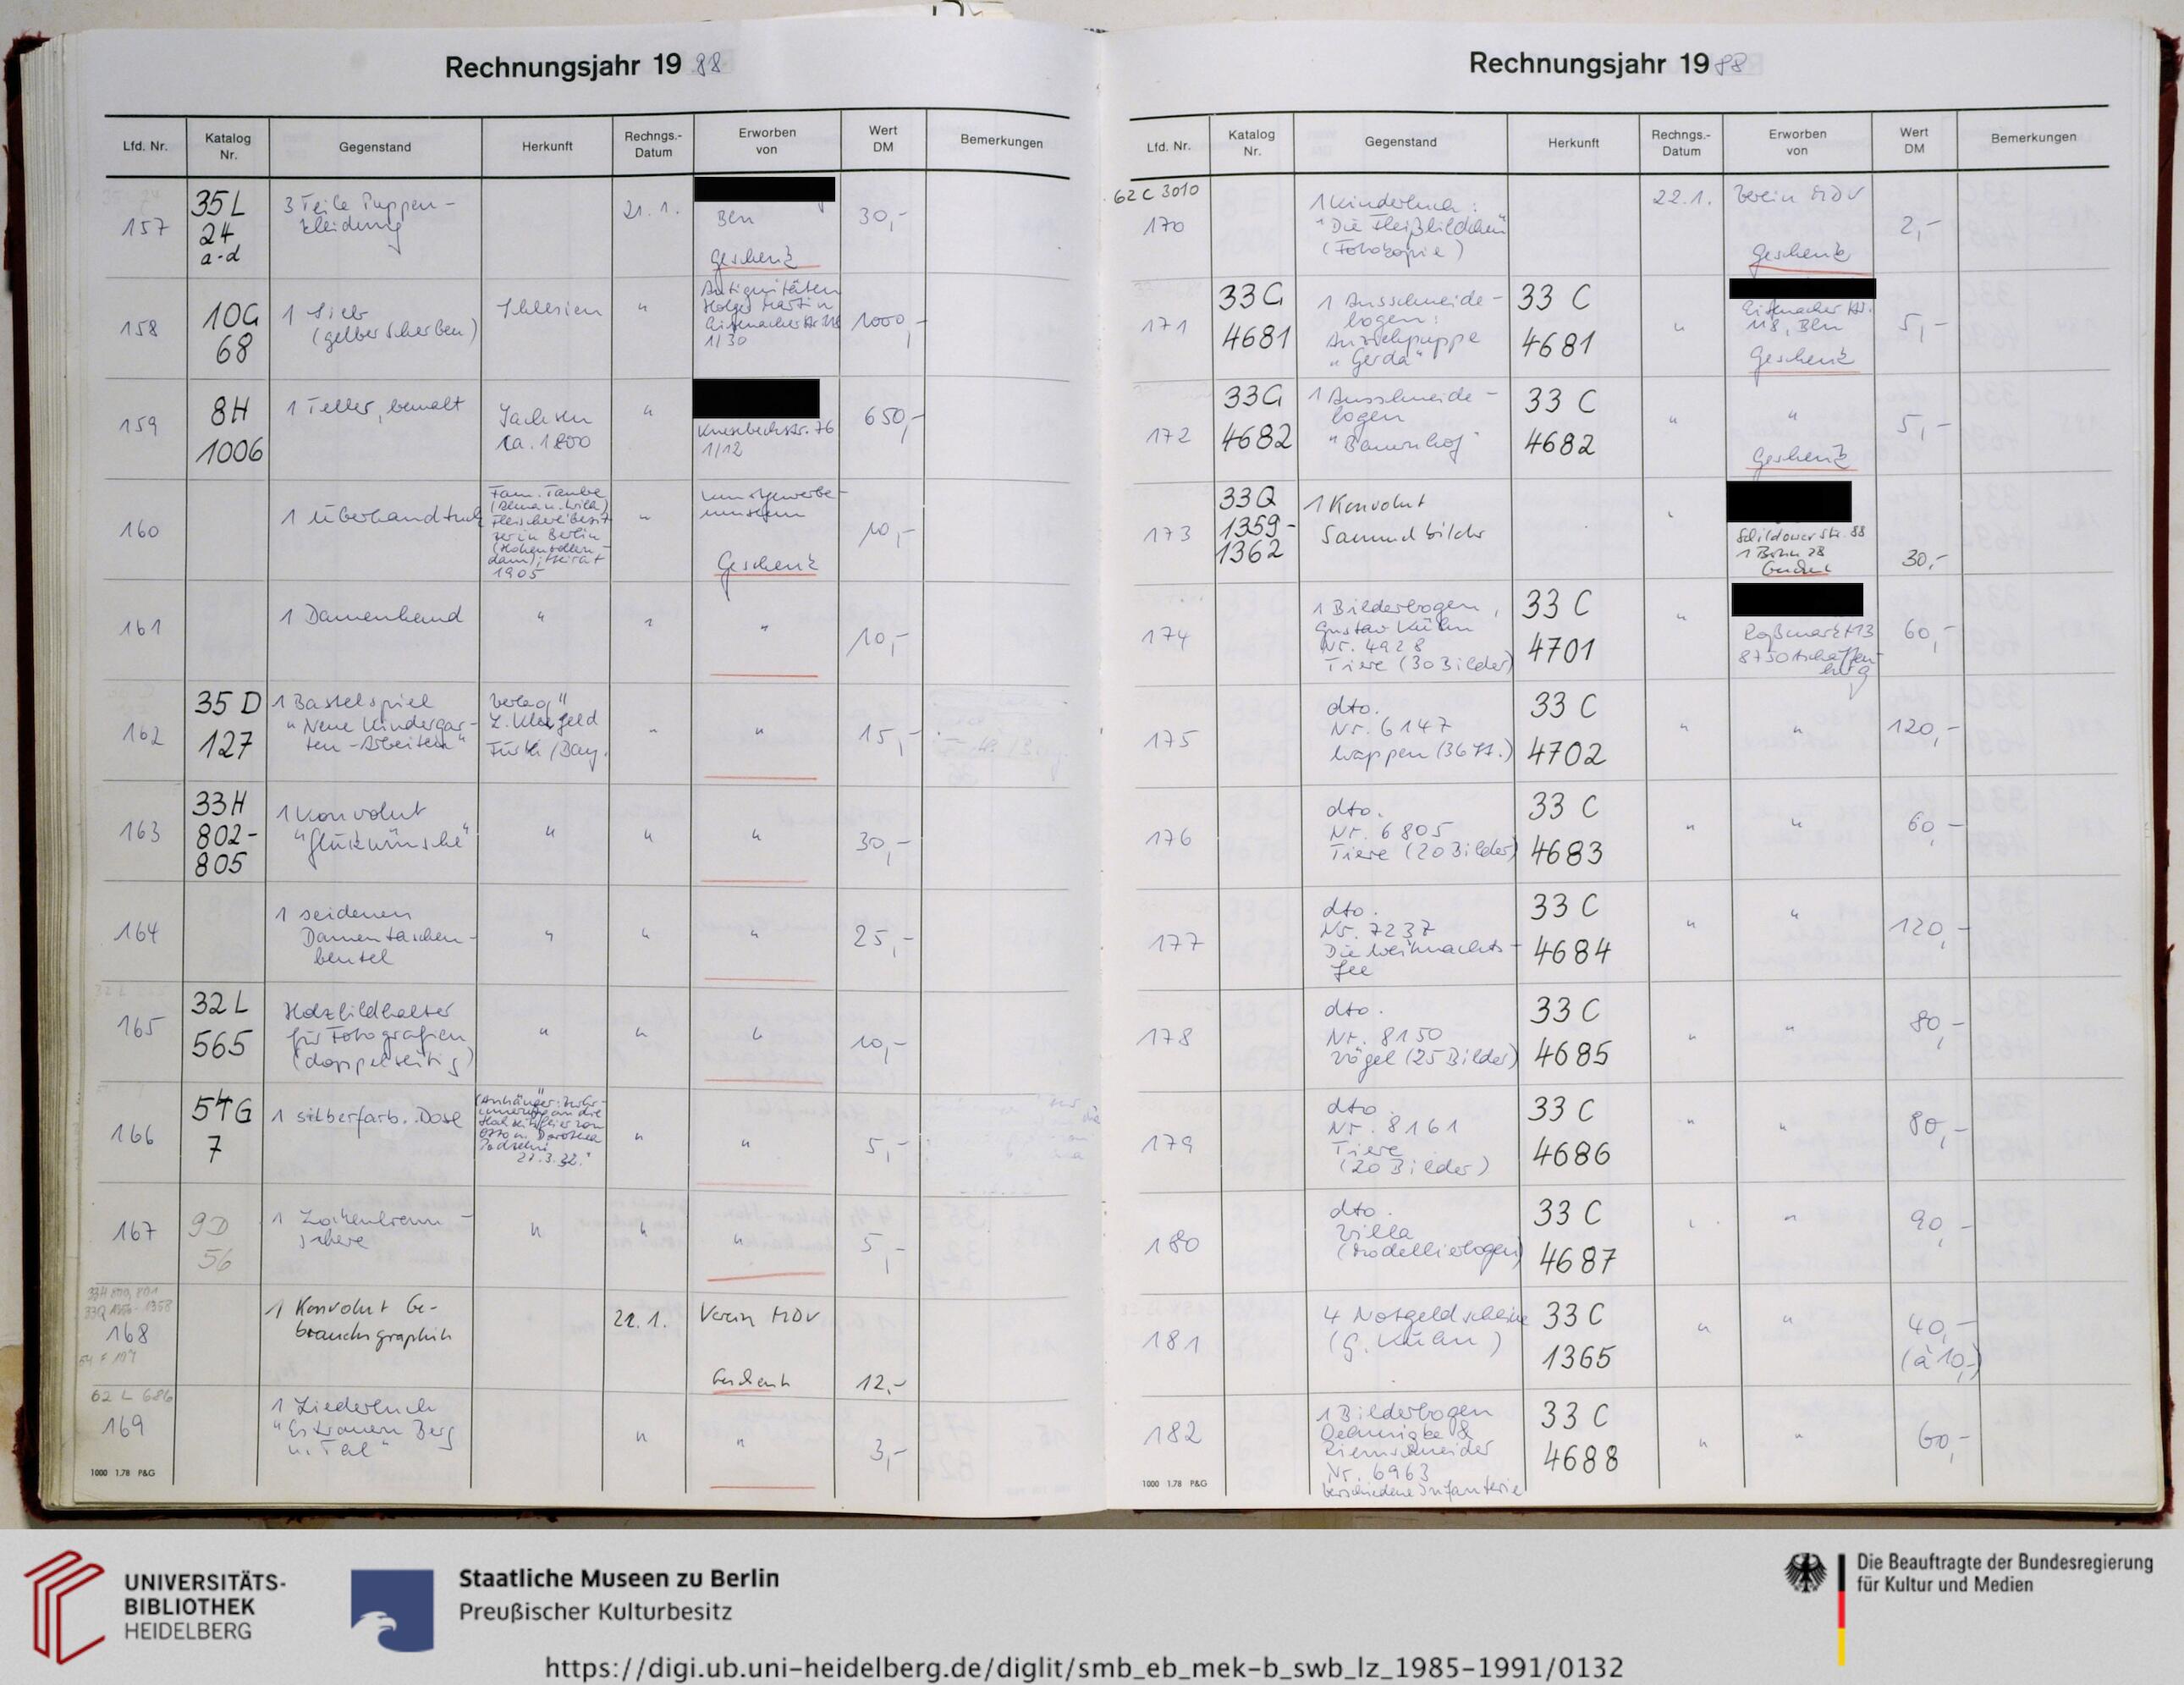 Rechnungsjahr 19 88
Lfd. Nr.
Katalog Nr.
Gegenstand
Herkunft
Rechngs.-Datum
Erworben von
Wert DM
Bemerkungen
157
35 L
24
a-d
3 Teile Puppen-
kleidung
21. 1.
Bln
Geschenk
30,-
158
10G
68
1 Sieb
(gelber Scherben)
Schlesien
"
Antiquitäten
Holger Martin
Eisenacher Str. 118
1/30
1000,-
159
8H
1006
1 Teller, bemalt
Sachsen
ca. 1800
"
Knesebeckstr. 76
1/12
650,-
160
1 Überhandtuch
Fam. Taube
(Alma u. Willi)
Fleischereibesit-
zer in Berlin
(Hohenzollern-
damm); Heirat
1905
"
Kunstgewerbe-
museum
Geschenk
10,-
161
1 Damenhemd
"
"
"
10,-
162
35 D
127
1 Bastelspiel
"Neue Kindergar-
ten-Arbeiten"
Verlag
Fürth/Bay.
"
"
15,-
163
33H
802-
805
1 Konvolut
"Glückwünsche"
"
"
"
30,-
164
1 seidenen
Damentaschen-
beutel
"
"
"
25,-
165
32 L
565
Holzbildhalter
für Fotografien
(doppelseitig)
"
"
"
10,-
166
54G
7
1 silberfarb. Dose
(Anhänger: zur Er-
innerung an die
Hochzeitsfeier von
Otto u. Dorothea
"
"
5,-
167
9D
56
1 Lockenbrenn-
schere
"
"
"
5,-
168
1 Konvolut Ge-
brauchsgraphik
21. 1.
Verein MDV
Geschenk
12,-
62 L 686
169
1 Liederbuch
"Es trauern Berg
u. Tal"
"
"
3,-
1000 1.78 P&G
Rechnungsjahr 19 88
Lfd. Nr.
Katalog Nr.
Gegenstand
Herkunft
Rechngs.-Datum
Erworben von
Wert DM
Bemerkungen
62 C 3010
170
1 Kinderbuch:
"Die Fleißbildchen"
(Fotokopie)
22. 1.
Verein MDV
Geschenk
2,-
171
33G
4681
1 Ausschneide-
bogen:
Anziehpuppe
"Gerda"
33 C
4681
"
Eisenacher Str.
118, Bln
Geschenk
5,-
172
33G
4682
1 Ausschneide-
bogen
"Bauernhof"
33 C
4682
"
"
Geschenk
5,-
173
33Q
1359-
1362
1 Konvolut
Sammelbilder
Schildower Str. 88
1 Berlin 28
Geschenk
30,-
174
1 Bilderbogen,
Gustav Kühn
Nr. 4928
Tiere (30 Bilder)
33 C
4701
"
Roßmarkt 13
8750 Aschaffen-
burg
60,-
175
dto.
Nr. 6147
Wappen (36 St.)
33 C
4702
"
"
120,-
176
dto.
Nr. 6805
Tiere (20 Bilder)
33 C
4683
"
"
60,-
177
dto.
Nr. 7237
Die Weihnachts-
fee
33 C
4684
"
"
120,-
178
dto.
Nr. 8150
Vögel (25 Bilder)
33 C
4685
"
"
80,-
179
dto.
Nr. 8161
Tiere
(20 Bilder)
33 C
4686
"
"
80,-
180
dto.
Villa
(Modellierbogen)
33 C
4687
"
"
90,-
181
4 Notgeldscheine
(G. Kühn)
33 C
1365
"
"
40,-
(à 10,-)
182
1 Bilderbogen
Oehmigke &
Riemschneider
Nr. 6963
Verschiedene Infanterie
33 C
4688
"
"
60,-
1000 1.78 P&G
UNIVERSITÄTS-
BIBLIOTHEK
HEIDELBERG
Staatliche Museen zu Berlin
Preußischer Kulturbesitz
Die Beauftragte der Bundesregierung
für Kultur und Medien
https://digi.ub.uni-heidelberg.de/diglit/smb_eb_mek-b_swb_lz_1985-1991/0132